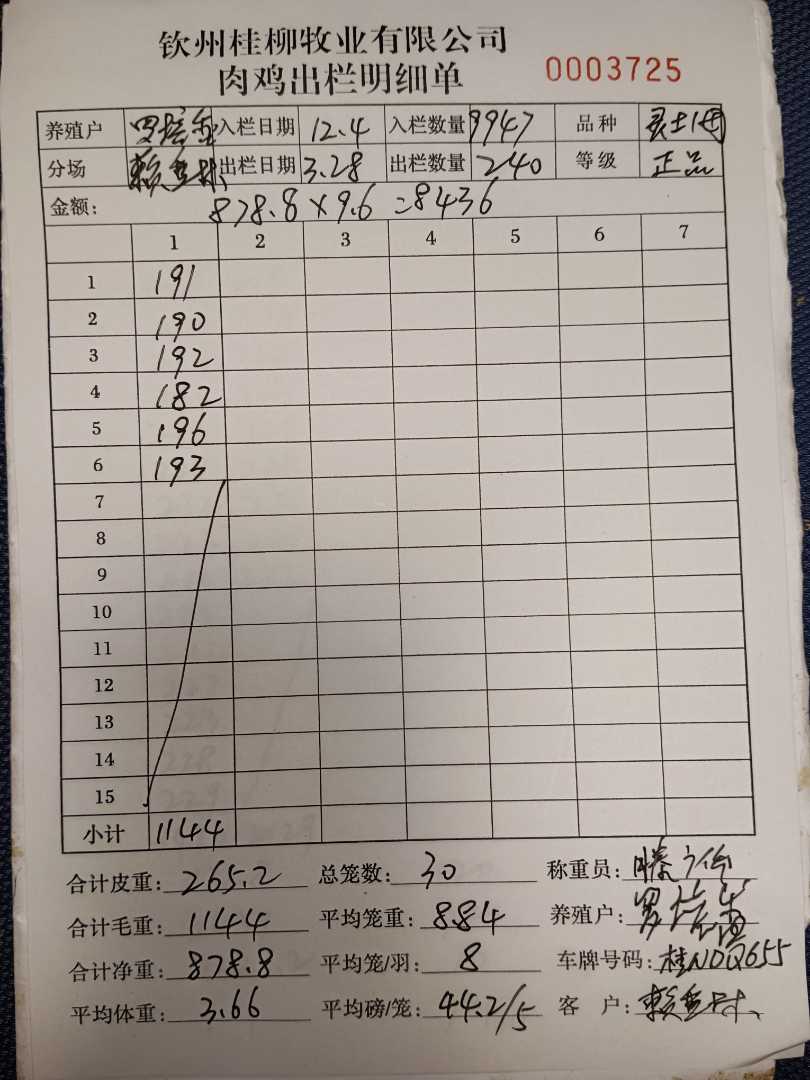 钦州桂柳牧业有限公司
肉鸡出栏明细单 0003725
养殖户 罗 入栏日期 12.4 入栏数量 9947 品种
分场 赖 出栏日期 3.28 出栏数量 240 等级 正品
金额: 878.8×9.6=8436
1 2 3 4 5 6 7
1 191
2 190
3 192
4 182
5 196
6 193
7
8
9
10
11
12
13
14
15
小计 1144
合计皮重: 265.2 总笼数: 30 称重员: 滕
合计毛重: 1144 平均笼重: 8.84 养殖户: 罗
合计净重: 878.8 平均笼/羽: 8 车牌号码: 桂NDQ655
平均体重: 3.66 平均磅/笼: 44.2/5 客户: 赖